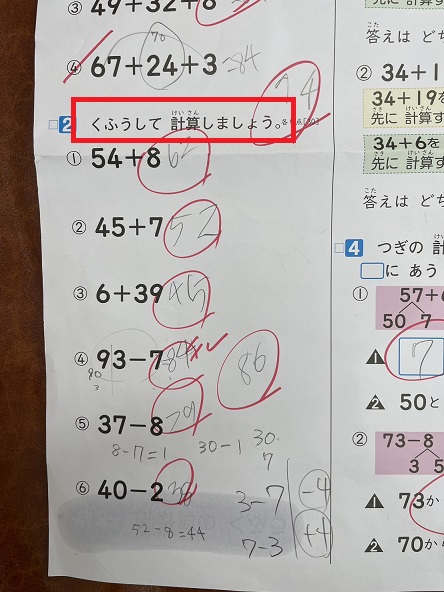 ③ 49+32+8
70
④ 67+24+3=84
94
2 くふうして 計算しましょう。
けいさん
① 54+8 62
② 45+7 52
③ 6+39 45
④ 93-7=84 86
90
3
⑤ 37-8 29
8-7=1 30-1 30
7
⑥ 40-2 38
3-7 -4
52-8=44
7-3 +4
こた
答えは どち
② 34+1
34+19を
先に 計算す
34+6を
先に 計算す
こた
答えは どち
4 つぎの 計
に あう
① 57+6
50 7
▲1 7
▲2 50と
② 73-8
3 5
▲1 73か
▲2 70から